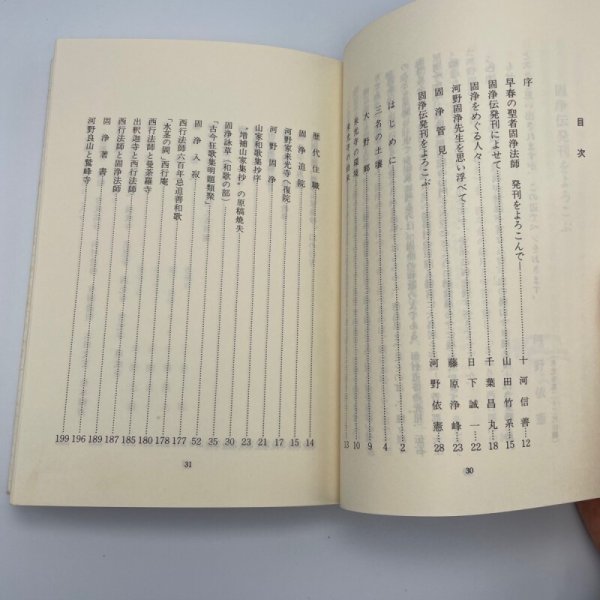 目次
序……十河信善…12
早春の聖者固浄法師　発刊をよろこんで―……山田竹系…15
固浄伝発刊によせて……千葉昌丸…18
固浄をめぐる人々……日下誠一…22
河野固浄先生を思い浮べて……藤原浄峰…23
固浄伝発刊をよろこぶ……河野依憲…28
固浄管見
はじめに……2
三名の土壌……4
大野郷……9
来光寺の環境……10
13
30
歴代住職……14
固浄道院……15
河野家来光寺へ復院……17
河野固浄……21
山家和歌集抄序……23
“増補山家集抄”の原稿焼失……24
固浄詠草（和歌の部）……30
「古今狂歌集明題類聚」……35
固浄入寂……52
西行法師六百年忌追善和歌……177
「水茎の岡」西行庵……178
西行法師と曼荼羅寺……180
出釈迦寺と西行法師……185
西行法師と固浄法師……187
固浄著書……189
河野良山と鷲峰寺……196
199
31